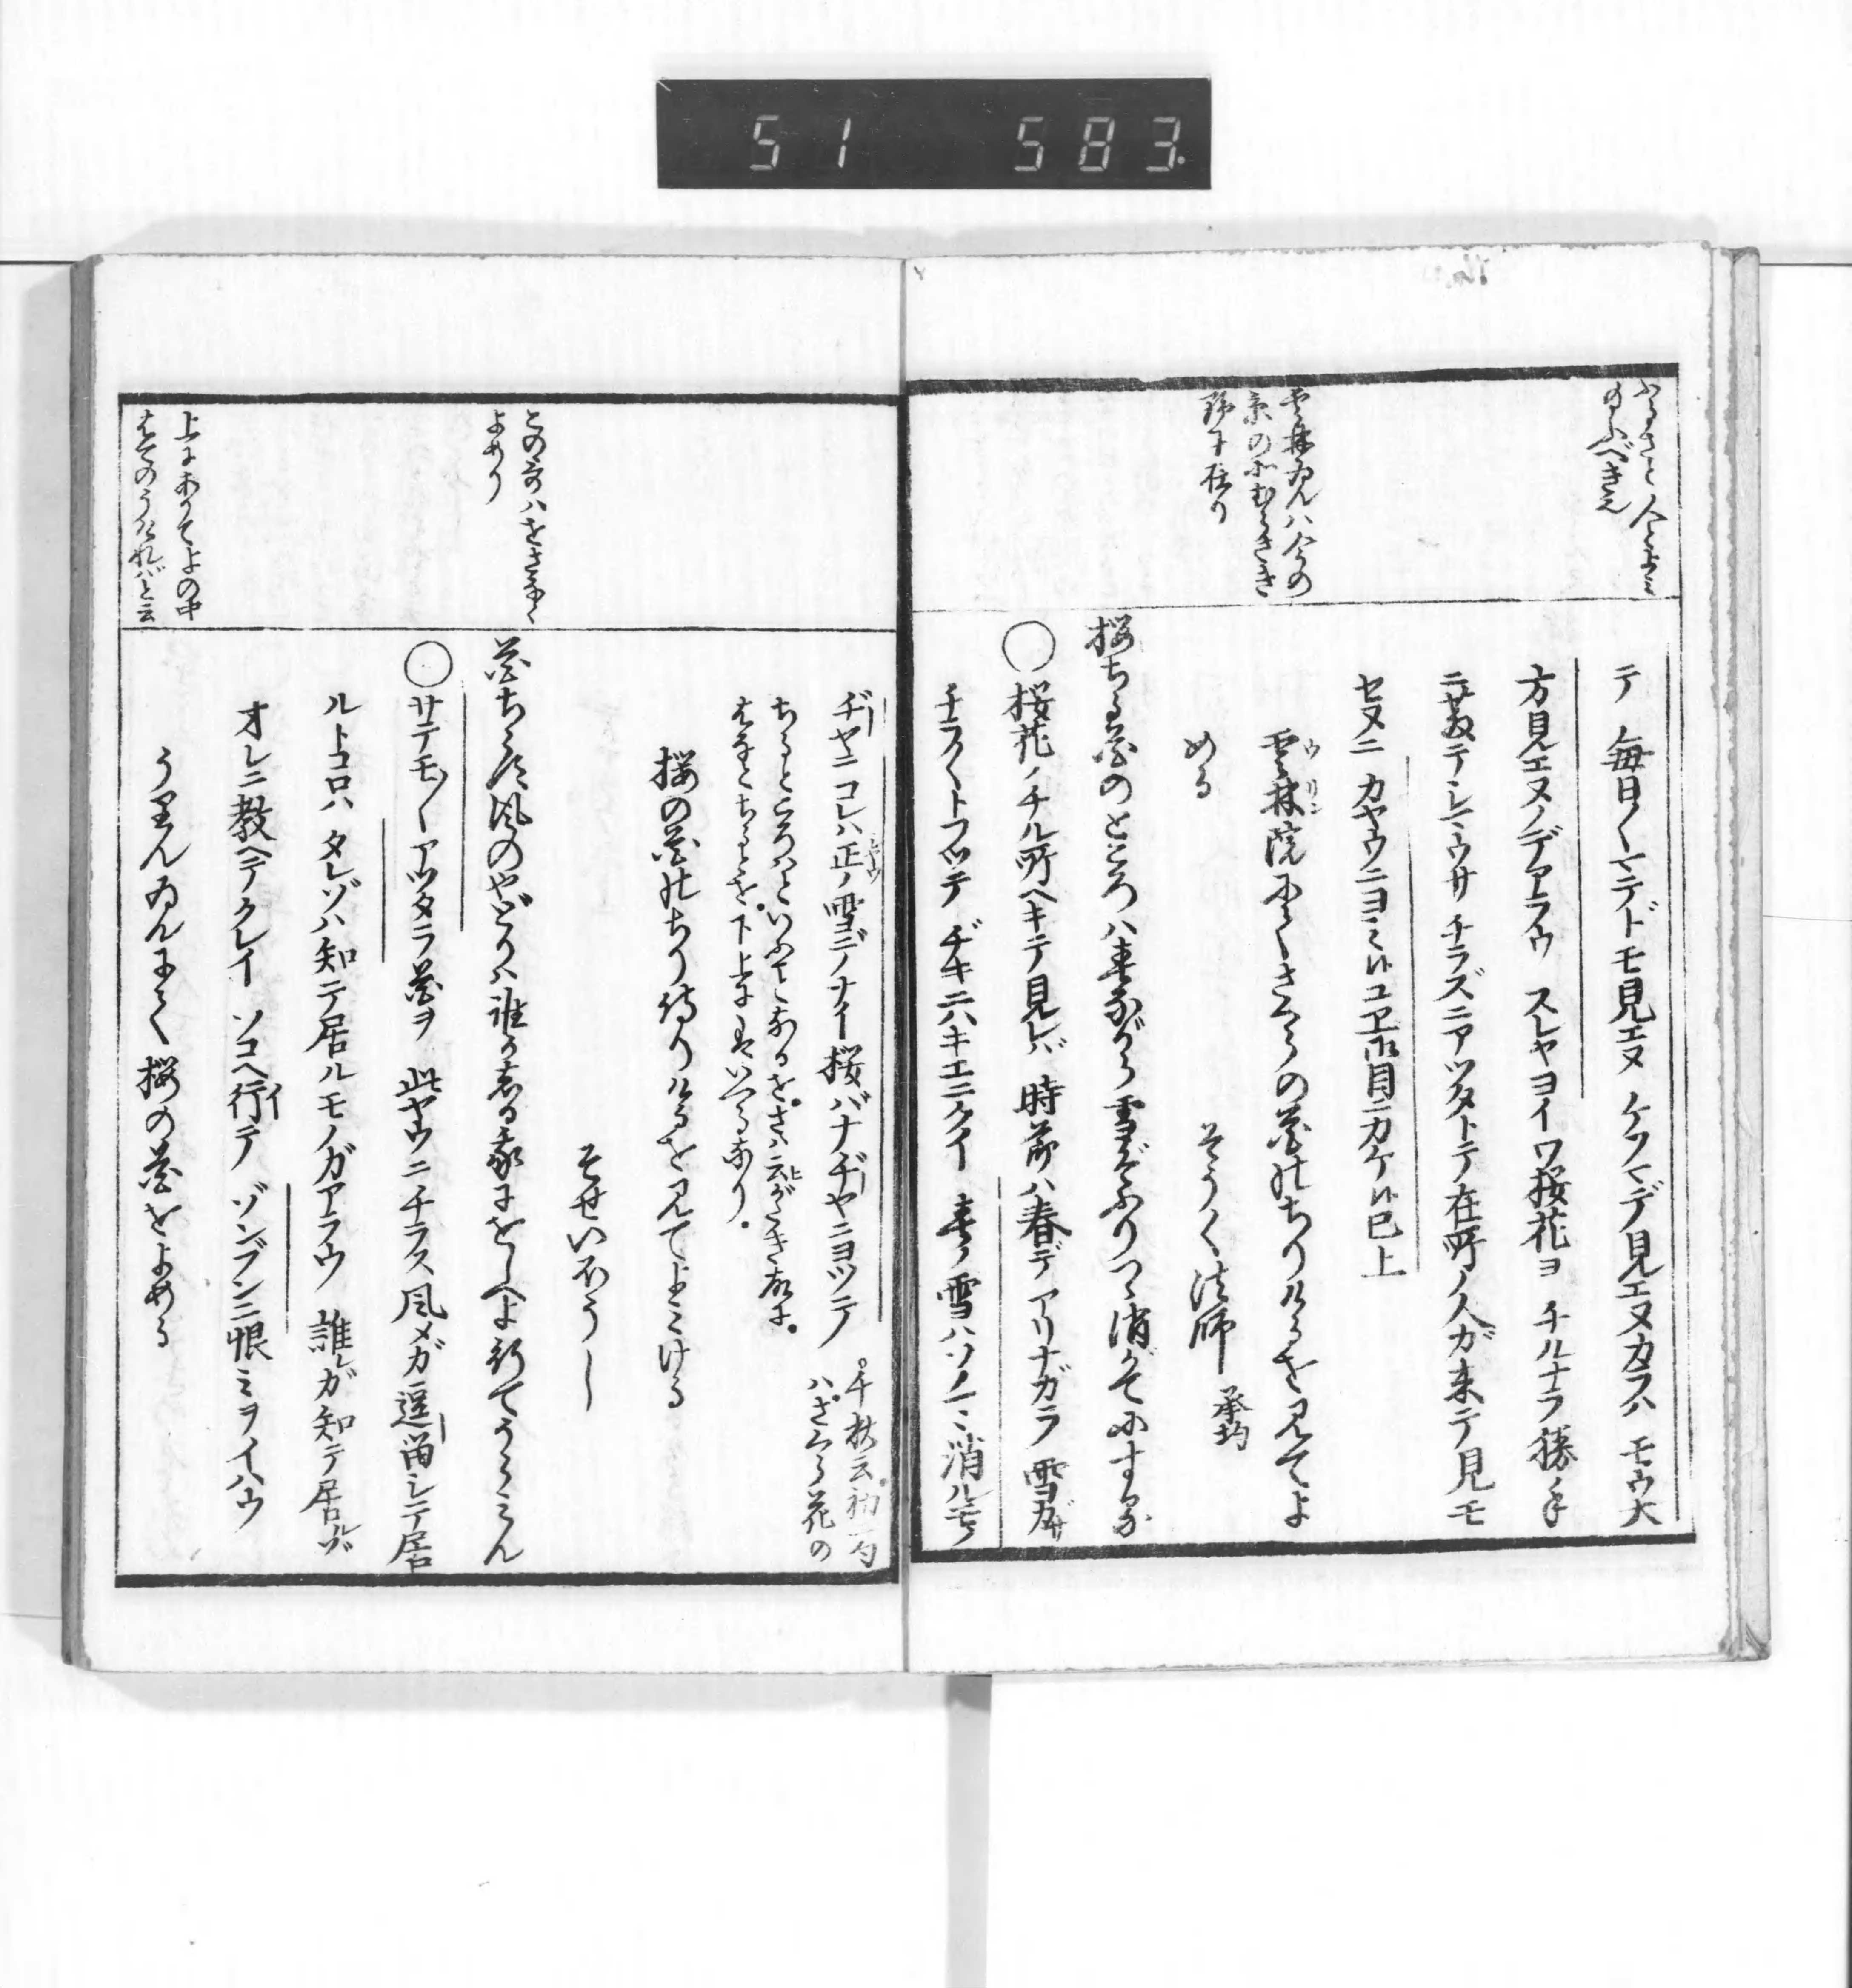 51 583.
ふるさと人とよミ
のぶべきえ
テ 毎日〱マデドモ見エヌ ケフマデ見エヌカラハ モウ大
方見エヌノデアラウ スレヤヨイワ桜花ヨ チルナラ勝手
ニ散テシマウサ チラズニアツタトテ在所ノ人ガ来テ見モ
セヌニ カヤウニヨミ
雲林ゐんハ今の
京の北むらさき
野に在り
雲林院にてさくらの花のちりけるを見てよ
ウリン
める
そうく法師 承均
桜ちる花のところハ春ながら雪ぞふりつゝ消がてにする
○桜花ノチル所ヘキテ見レバ 時節ハ春デアリナガラ 雪ガサ
チラ〱トフツテ ヂキニハキエニクイ 春ノ雪ハソノマヽ消ルモノ
ヂヤニ コレハ正ノ雪デナイ 桜バナヂヤニヨツテ
◦千秋云。初二句
ハ。さくら花の
ちるところハといふべくあるを。さハ云がたき故に。
はなのちるを。下上にハいへるなり。
桜の花のちり侍りけるを見てよミける
そせいほうし
この哥ハをさなく
よめり
花ちらす風のやどりハ誰かしる我にをしへよ行てうらミん
○サテモ〱アツタラ花ヲ 此ヤウニチラス風メガ逗留シテ居
ルトコロハ タレゾハ知テ居ルモノガアラウ 誰ガ知テ居ルゾ
オレニ教ヘテクレイ ソコヘ行テ ゾンブンニ恨ミヲイハウ
うりんゐんにて桜の花をよめる
上にありてよの中
はてのうければと云